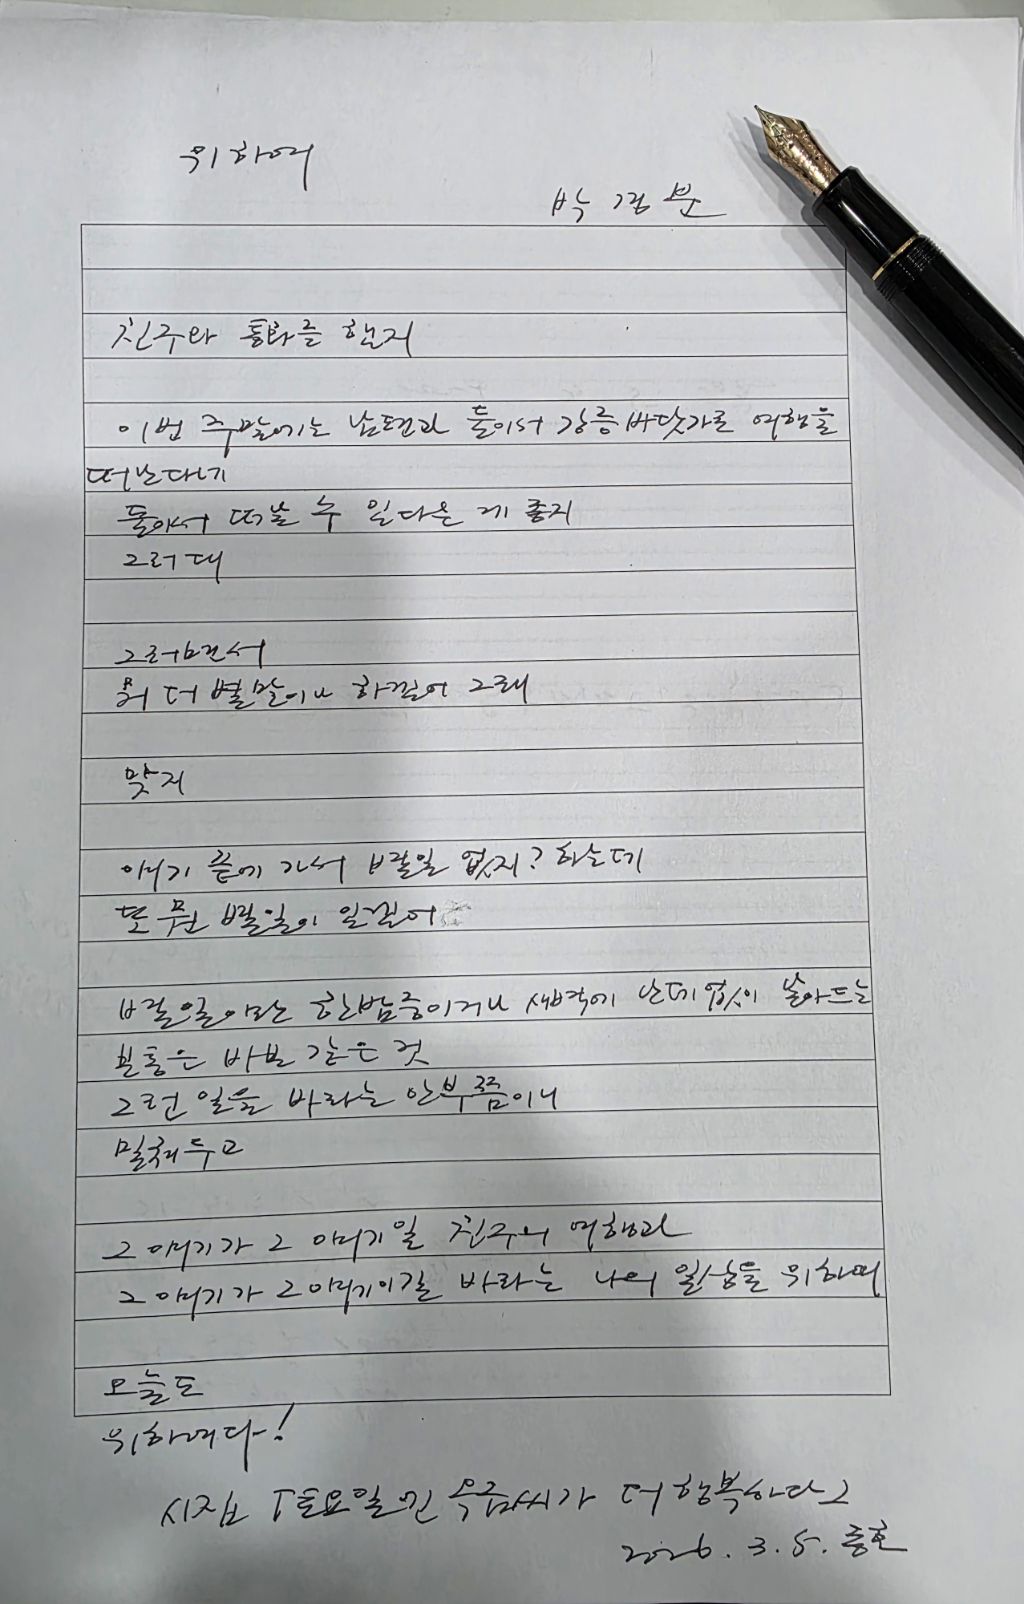 위하여
박경분
친구와 통화를 했지
이번 주말에는 남편과 둘이서 강릉 바닷가로 여행을
떠난다네
둘이서 떠날 수 있다는 게 좋지
그러대
그러면서
뭐 더 별말이나 하겠어 그래
맞지
이야기 끝에 가서 별일 없지? 하는데
또 무슨 별일이 있겠어
별일이란 한밤중이거나 새벽에 난데없이 날아드는
분통은 바보 같은 것
그런 일을 바라는 안부쯤이니
밀쳐두고
그 이야기가 그 이야기일 친구의 여행과
그 이야기가 그 이야기이길 바라는 나의 일상을 위하여
오늘도
위하여다!
시집 토요일 씨가 더 행복하다
2026. 3. 5. 종호